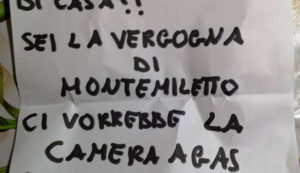 DI CASA!!
SEI LA VERGOGNA
DI
MONTEMILETTO
CI VORREBBE LA
CAMERA A GAS